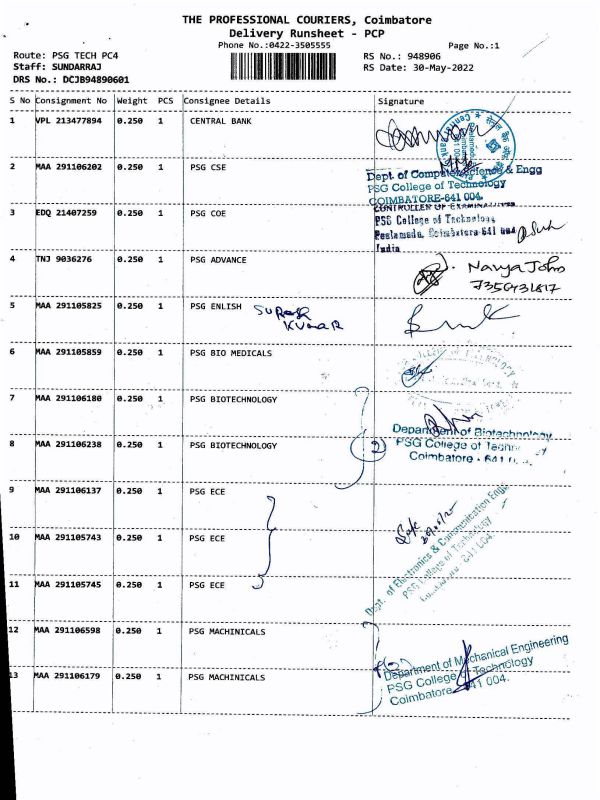 THE PROFESSIONAL COURIERS, Coimbatore
Delivery Runsheet - PCP
Phone No.:0422-3505555
Page No.:1
Route: PSG TECH PC4
RS No.: 948906
Staff: SUNDARRAJ
RS Date: 30-May-2022
DRS No.: DCJB94890601
S No Consignment No Weight PCS Consignee Details Signature
1 VPL 213477894 0.250 1 CENTRAL BANK
2 MAA 291106202 0.250 1 PSG CSE
Dept. of Computer Science & Engg
PSG College of Technology
COIMBATORE-641 004.
3 EDQ 21407259 0.250 1 PSG COE
CONTROLLER OF EXAMINATIONS
PSG College of Technology
Peelamedu, Coimbatore 641 004
India
4 TNJ 9036276 0.250 1 PSG ADVANCE
Navya John
7356431817
5 MAA 291105825 0.250 1 PSG ENLISH SURESH
KUMAR
6 MAA 291105859 0.250 1 PSG BIO MEDICALS
7 MAA 291106180 0.250 1 PSG BIOTECHNOLOGY
Department of Biotechnology
8 MAA 291106238 0.250 1 PSG BIOTECHNOLOGY 2
PSG College of Techn
Coimbatore - 641
9 MAA 291106137 0.250 1 PSG ECE
10 MAA 291105743 0.250 1 PSG ECE
Dept. of Electronics & Communication Engg
PSG College of Technology
641 004.
11 MAA 291105745 0.250 1 PSG ECE
12 MAA 291106598 0.250 1 PSG MACHINICALS
Department of Mechanical Engineering
PSG College of Technology
Coimbatore 641 004.
13 MAA 291106179 0.250 1 PSG MACHINICALS